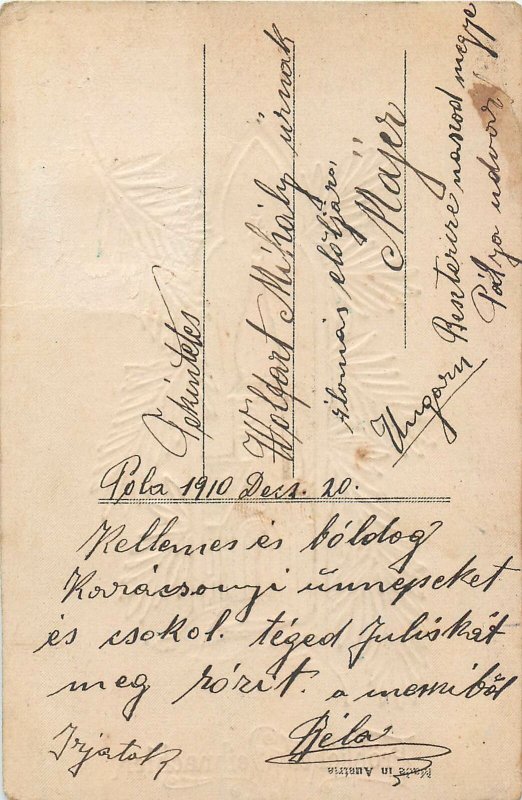 Tekintetes
Wolfart Mihály úrnak
álomás előljáró
Májer
Beszterize naszod megye
Pálya udvar
Ungarn
Póla 1910 Desz. 20.
Kellemes és bóldog
Karácsonyi ünnepeket
és csokol. téged Juliskát
meg rózit. a messiből
Béla
Irjatok
Made in Austria